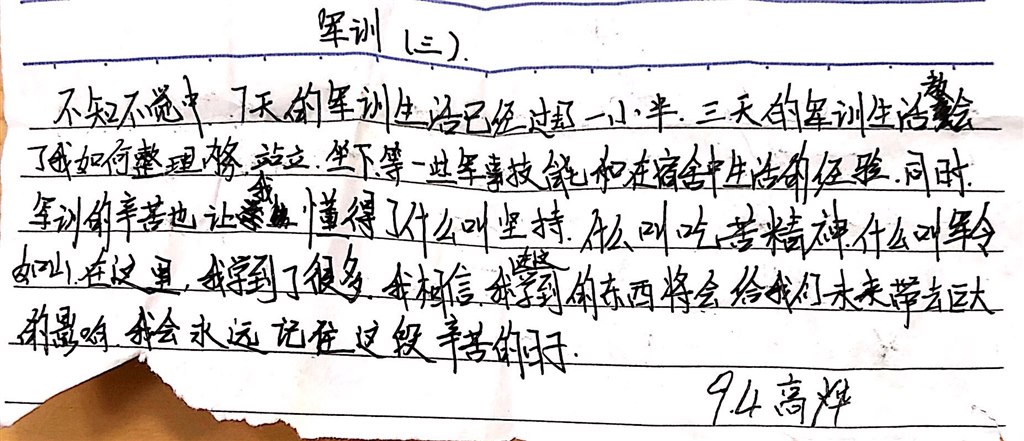 军训（三）.
不知不觉中,7天的军训生活已经过了一小半.三天的军训生活教会
了我如何整理内务,站立.坐下.等一些军事技能和在宿舍中生活的经验.同时.
军训的辛苦也让我懂得了什么叫坚持.什么叫吃苦精神.什么叫军令
如山.在这里,我学到了很多.我相信,我学到的东西将会给我们未来带去巨大
的影响.我会永远记住这段辛苦的日子.
9.4 高烨